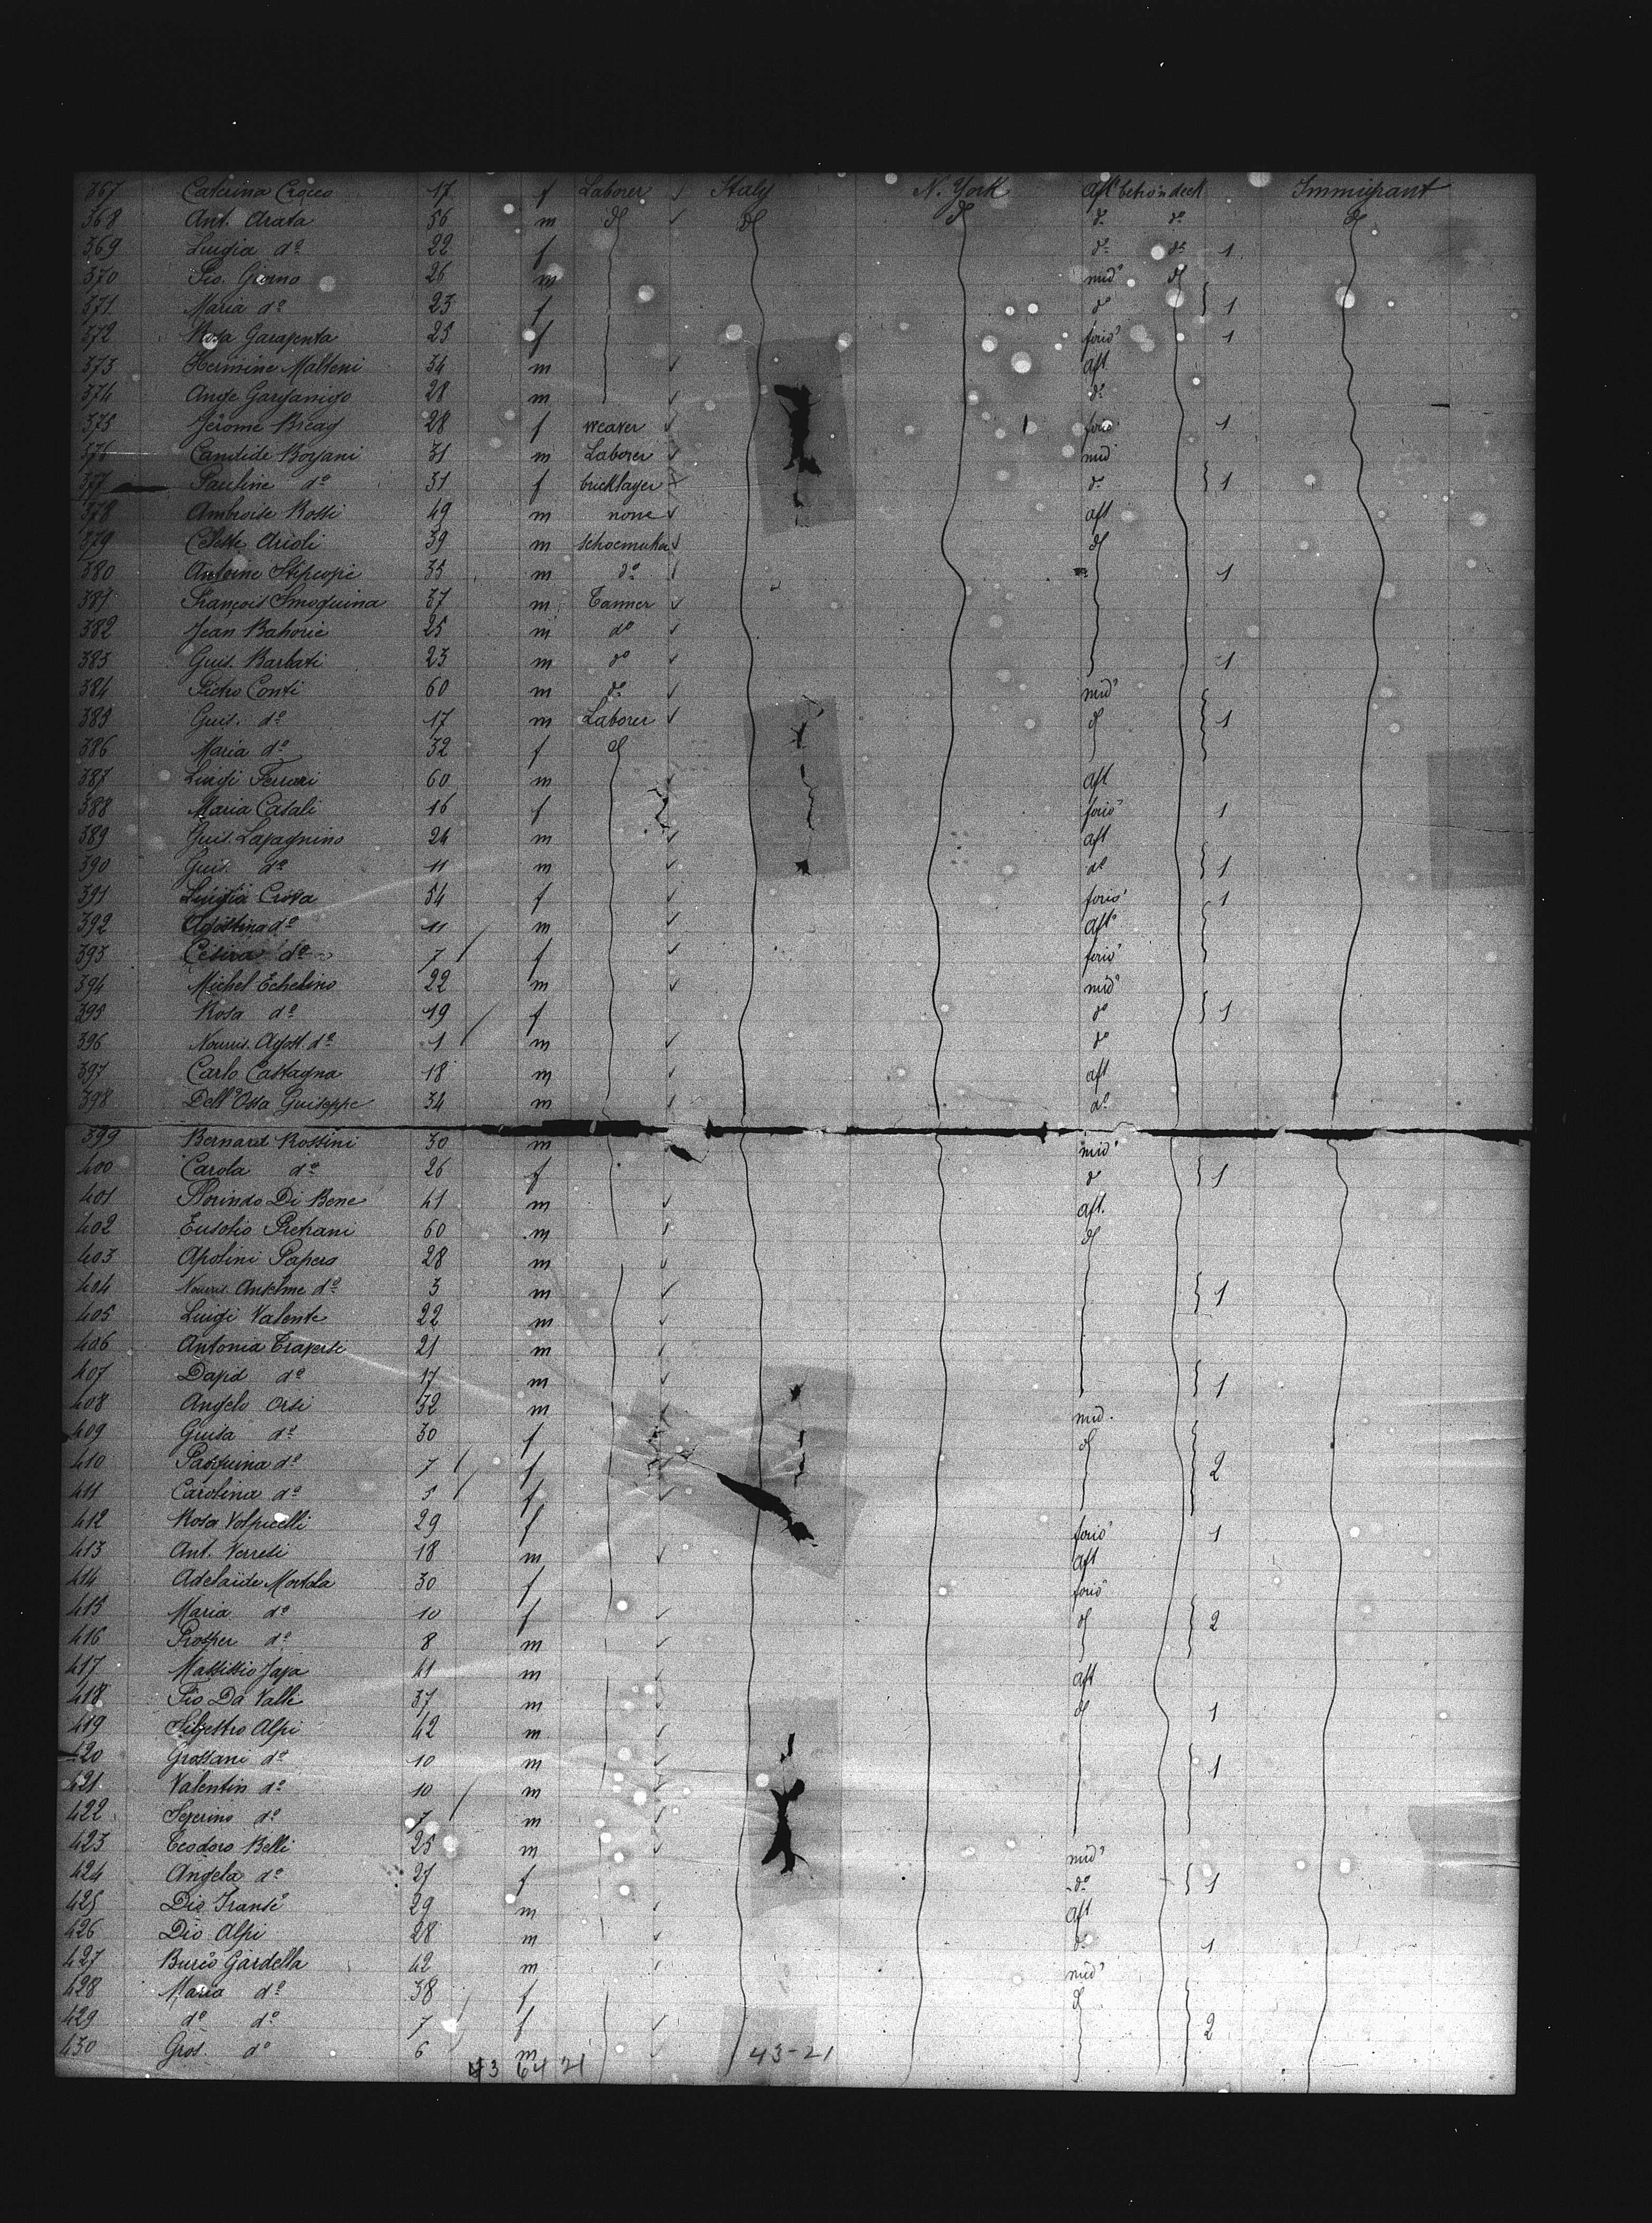 367 Caterina Crocco 17 f Laborer Italy N. York aft betw'n deck Immigrant
368 Ant. Arata 56 m do do do do do do
369 Luigia do 22 f do do 1
370 Gio. Giorno 26 m mid' do
371 Maria do 23 f do 1
372 Rosa Garaventa 25 f 1
373 Hermine Malteni 34 m aft
374 Ange Garganigo 28 m do
375 Jérome Breag 28 f weaver 1
376 Candide Borgani 31 m Laborer mid'
377 Pauline do 31 f bricklayer do 1
378 Ambroise Rossi 49 m none aft
379 Celeste Arioli 39 m schoemaker do
380 Antoine 35 m do 1
381 François Smoquina 37 m Tanner
382 Jean Bahorie 25 m do
383 Guis. Barbati 23 m do 1
384 Pietro Conti 60 m do mid'
385 Guis. do 17 m Laborer do 1
386 Maria do 32 f do
387 Luigi Ferrari 60 m aft
388 Maria Casali 16 f 1
389 Guis. Lavagnino 24 m aft
390 Guis. do 11 m do 1
391 Luigia Crova 54 f 1
392 Agostina do 11 m aft
393 Cesira do 7 f
394 Michel Echelino 22 m mid'
395 Rosa do 19 f do 1
396 Nourris. Agost. do 1 m do
397 Carlo Castagna 18 m aft
398 Dell'Osta Guiseppe 34 m do
399 Bernard Rossini 30 m mid'
400 Carola do 26 f do 1
401 Florindo Di Bene 41 m aft.
402 Eusobio Pretrani 60 m do
403 Apolini Papera 28 m
404 Nourris. Anselme do 3 m 1
405 Luigi Valente 22 m
406 Antonia Traverse 21 m
407 David do 17 m 1
408 Angelo Orsi 32 m mid.
409 Guisa do 30 f do
410 Pasquina do 7 f 2
411 Carolina do 5 f
412 Rosa Volpicelli 29 f 1
413 Ant. Verresi 18 m aft
414 Adelaïde Mortola 30 f
415 Maria do 10 f do 2
416 Prosper do 8 m
417 Massissio Java 41 m aft
418 Fio Da Valle 37 m do 1
419 Silvestro Alpi 42 m
420 Grossani do 10 m 1
421 Valentin do 10 m
422 Severino do 7 m
423 Teodoro Belli 25 m mid'
424 Angela do 27 f do 1
425 Dio 29 m aft
426 Dio Alpi 28 m do 1
427 Gardella 42 m mid'
428 Maria do 38 f do
429 do do 7 f 2
430 Gros. do 6 m
43 64 21 43-21